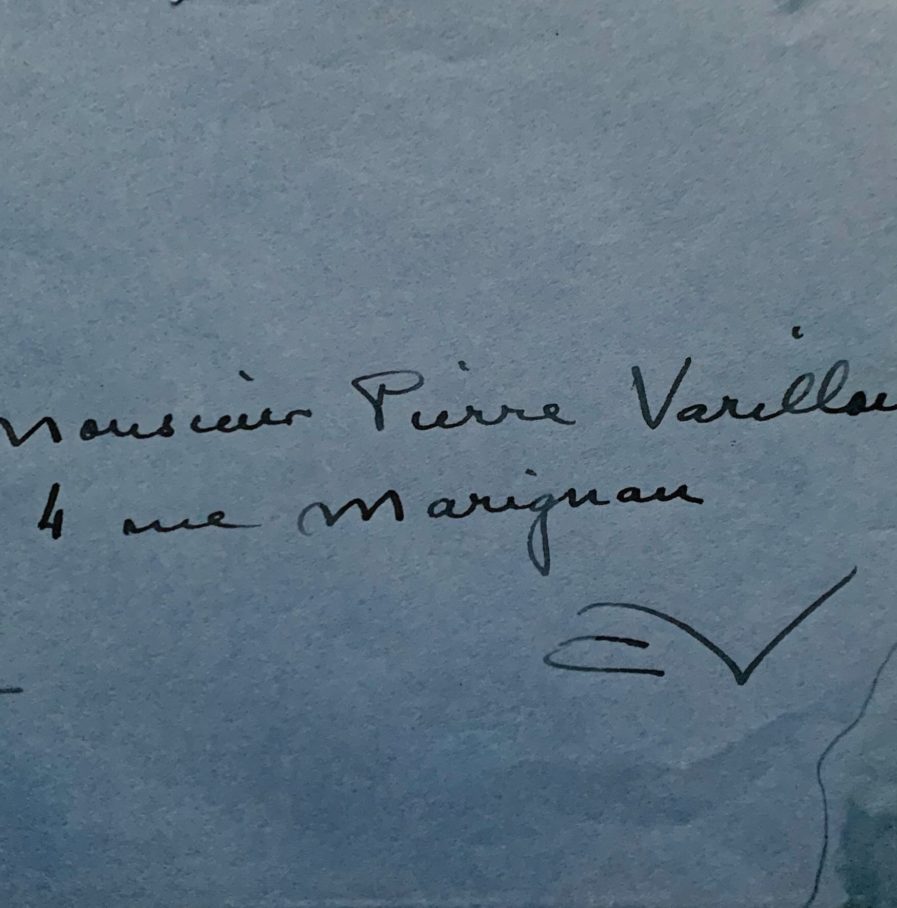 Monsieur Pierre Varillon
4 rue Marignan
EV